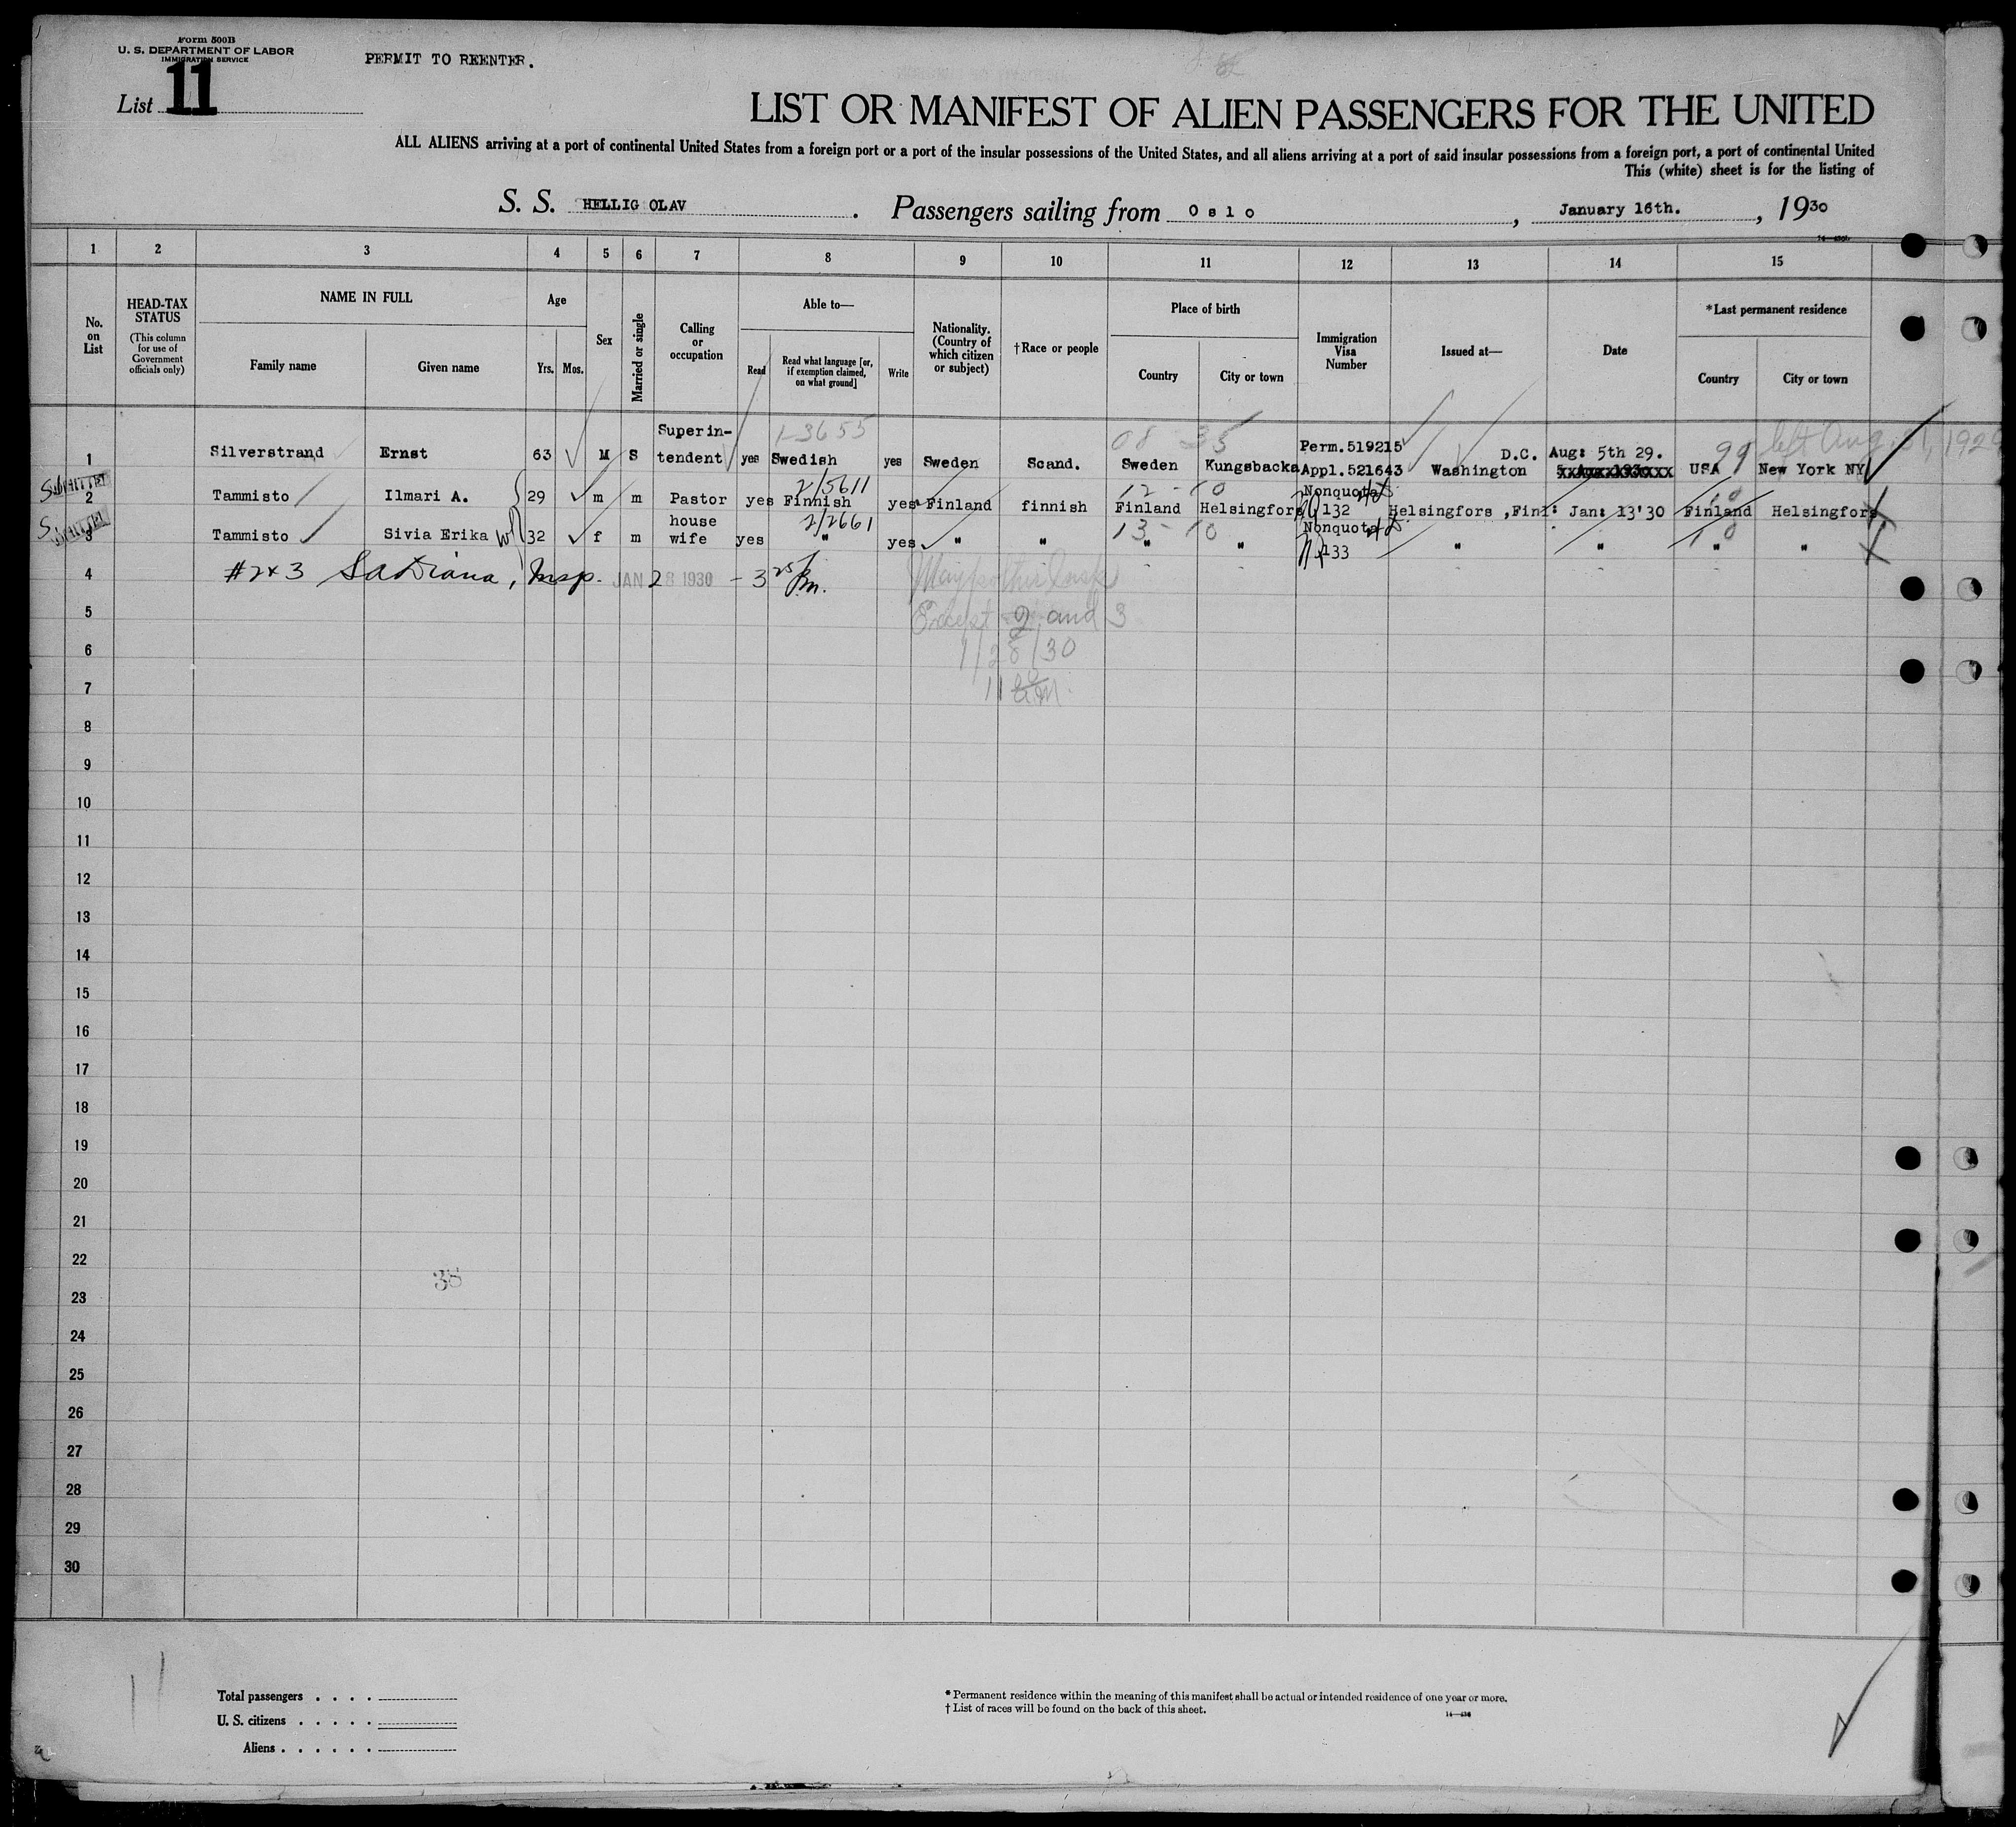 Form 500B
U. S. DEPARTMENT OF LABOR
IMMIGRATION SERVICE
PERMIT TO REENTER.
List 11
LIST OR MANIFEST OF ALIEN PASSENGERS FOR THE UNITED
ALL ALIENS arriving at a port of continental United States from a foreign port or a port of the insular possessions of the United States, and all aliens arriving at a port of said insular possessions from a foreign port, a port of continental United
This (white) sheet is for the listing of
S. S. HELLIG OLAV. Passengers sailing from Oslo, January 16th., 1930
1 2 3 4 5 6 7 8 9 10 11 12 13 14 15
No. on List
HEAD-TAX STATUS
(This column for use of Government officials only)
NAME IN FULL
Family name
Given name
Age
Yrs. Mos.
Sex
Married or single
Calling or occupation
Able to—
Read
Read what language [or, if exemption claimed, on what ground]
Write
Nationality. (Country of which citizen or subject)
†Race or people
Place of birth
Country
City or town
Immigration Visa Number
Issued at—
Date
*Last permanent residence
Country
City or town
1-3655
08 35
99 left Aug. 31, 1929
1 Silverstrand Ernst 63 M S Superin-tendent yes Swedish yes Sweden Scand. Sweden Kungsbacka Perm.519215 Appl.521643 Washington D.C. Aug: 5th 29. USA New York NY
SUBMITTED
2/5611
12 - 10
10
2 Tammisto Ilmari A. 29 m m Pastor yes Finnish yes Finland finnish Finland Helsingfors Nonquota 132 Helsingfors ,Finl: Jan: 13'30 Finland Helsingfors
2/2661
13 - 10
10
3 Tammisto Sivia Erika wf 32 f m house wife yes " yes " " " " Nonquota 133 " " " "
4 #2 & 3 LaDiana, Insp. JAN 28 1930 - 3 25 P.m.
5 Except 2 and 3
6 1/28/30
7 11
8
9
10
11
12
13
14
15
16
17
18
19
20
21
22
38
23
24
25
26
27
28
29
30
11
Total passengers . . . .
U. S. citizens . . . . .
Aliens . . . . . .
* Permanent residence within the meaning of this manifest shall be actual or intended residence of one year or more.
† List of races will be found on the back of this sheet.